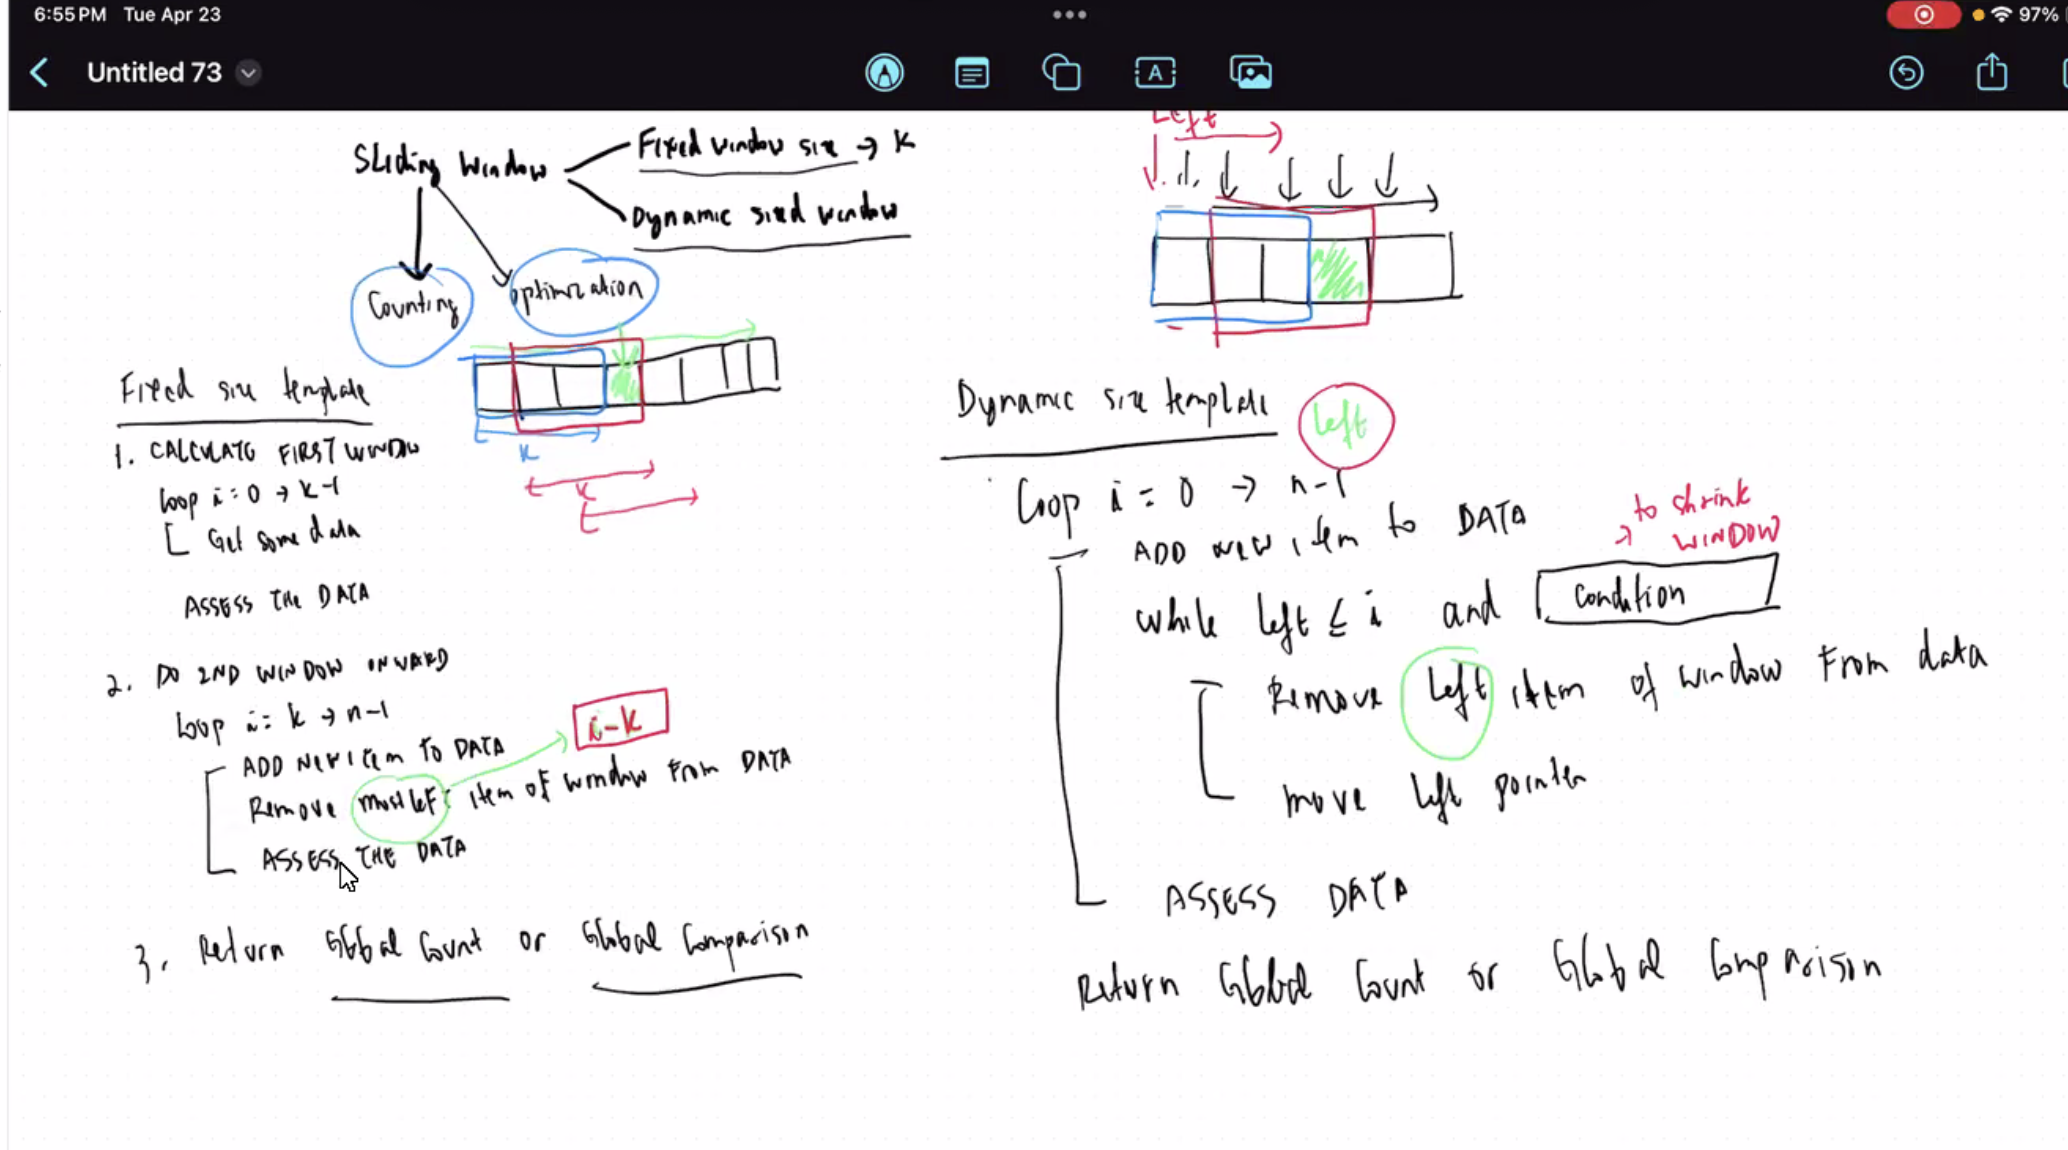 6:55 PM Tue Apr 23
97%
Untitled 73
A
Sliding Window
Fixed window size → k
Dynamic sized window
Counting
optimization
k
k
Fixed size template
1. CALCULATE FIRST WINDOW
Loop i = 0 → k-1
Get some data
ASSESS THE DATA
2. DO 2ND WINDOW ONWARD
Loop i = k → n-1
ADD NEW item TO DATA
Remove most left item of window from DATA
i-k
ASSESS THE DATA
3. Return Global Count or Global Comparison
Left
Dynamic size template
left
Loop i = 0 → n-1
ADD NEW item to DATA
→ to shrink
WINDOW
while left ≤ i and condition
Remove left item of window from data
move left pointer
ASSESS DATA
Return Global Count or Global Comparison